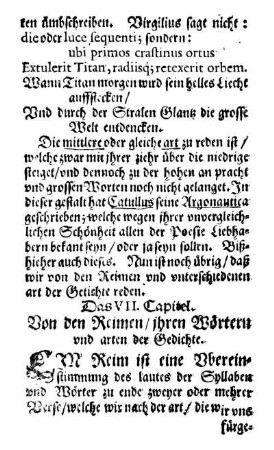 ten ümbschreiben. Virgilius sagt nicht:
die oder luce sequenti; sondern:
ubi primos crastinus ortus
Extulerit Titan, radiisq; retexerit orbem.
Wann Titan morgen wird sein helles Liecht
auffstecken/
Vnd durch der Stralen Glantz die grosse
Welt entdencken.
Die mittlere oder gleiche art zu reden ist/
welche zwar mit jhrer ziehr über die niedrige
steiget/ vnd dennoch zu der hohen an pracht
vnd grossen Worten noch nicht gelanget. In
dieser gestalt hat Catullus seine Argonautica
geschrieben; welche wegen jhrer vnvergleich-
lichen Schönheit allen der Poesie Liebha-
bern bekant seyn/ oder ja seyn sollen. Biß-
hieher auch dieses. Nun ist noch übrig/ daß
wir von den Reimen vnd vnterschiedenen
art der Getichte reden.
Das VII. Capitel.
Von den Reimen/ jhren Wörtern
vnd arten der Gedichte.
EJN Reim ist eine Vberein-
stimmung des lautes der Syllaben
vnd Wörter zu ende zweyer oder mehrer
Verse/ welche wir nach der art/ die wir vns
fürge-